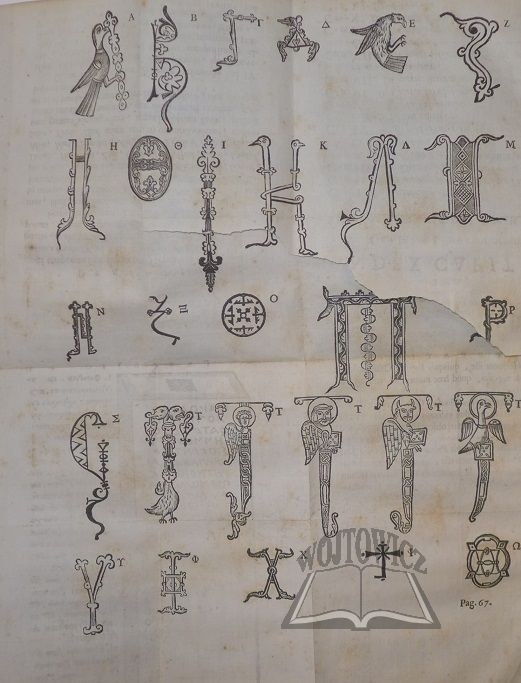 Α Β Γ Δ Ε Ζ
Η Θ Ι Κ Λ Μ
Ν Ξ Ο Ρ
Σ Τ Τ Τ Τ Τ
Υ Φ Χ Ω
WÓJTOWICZ
Pag. 67.